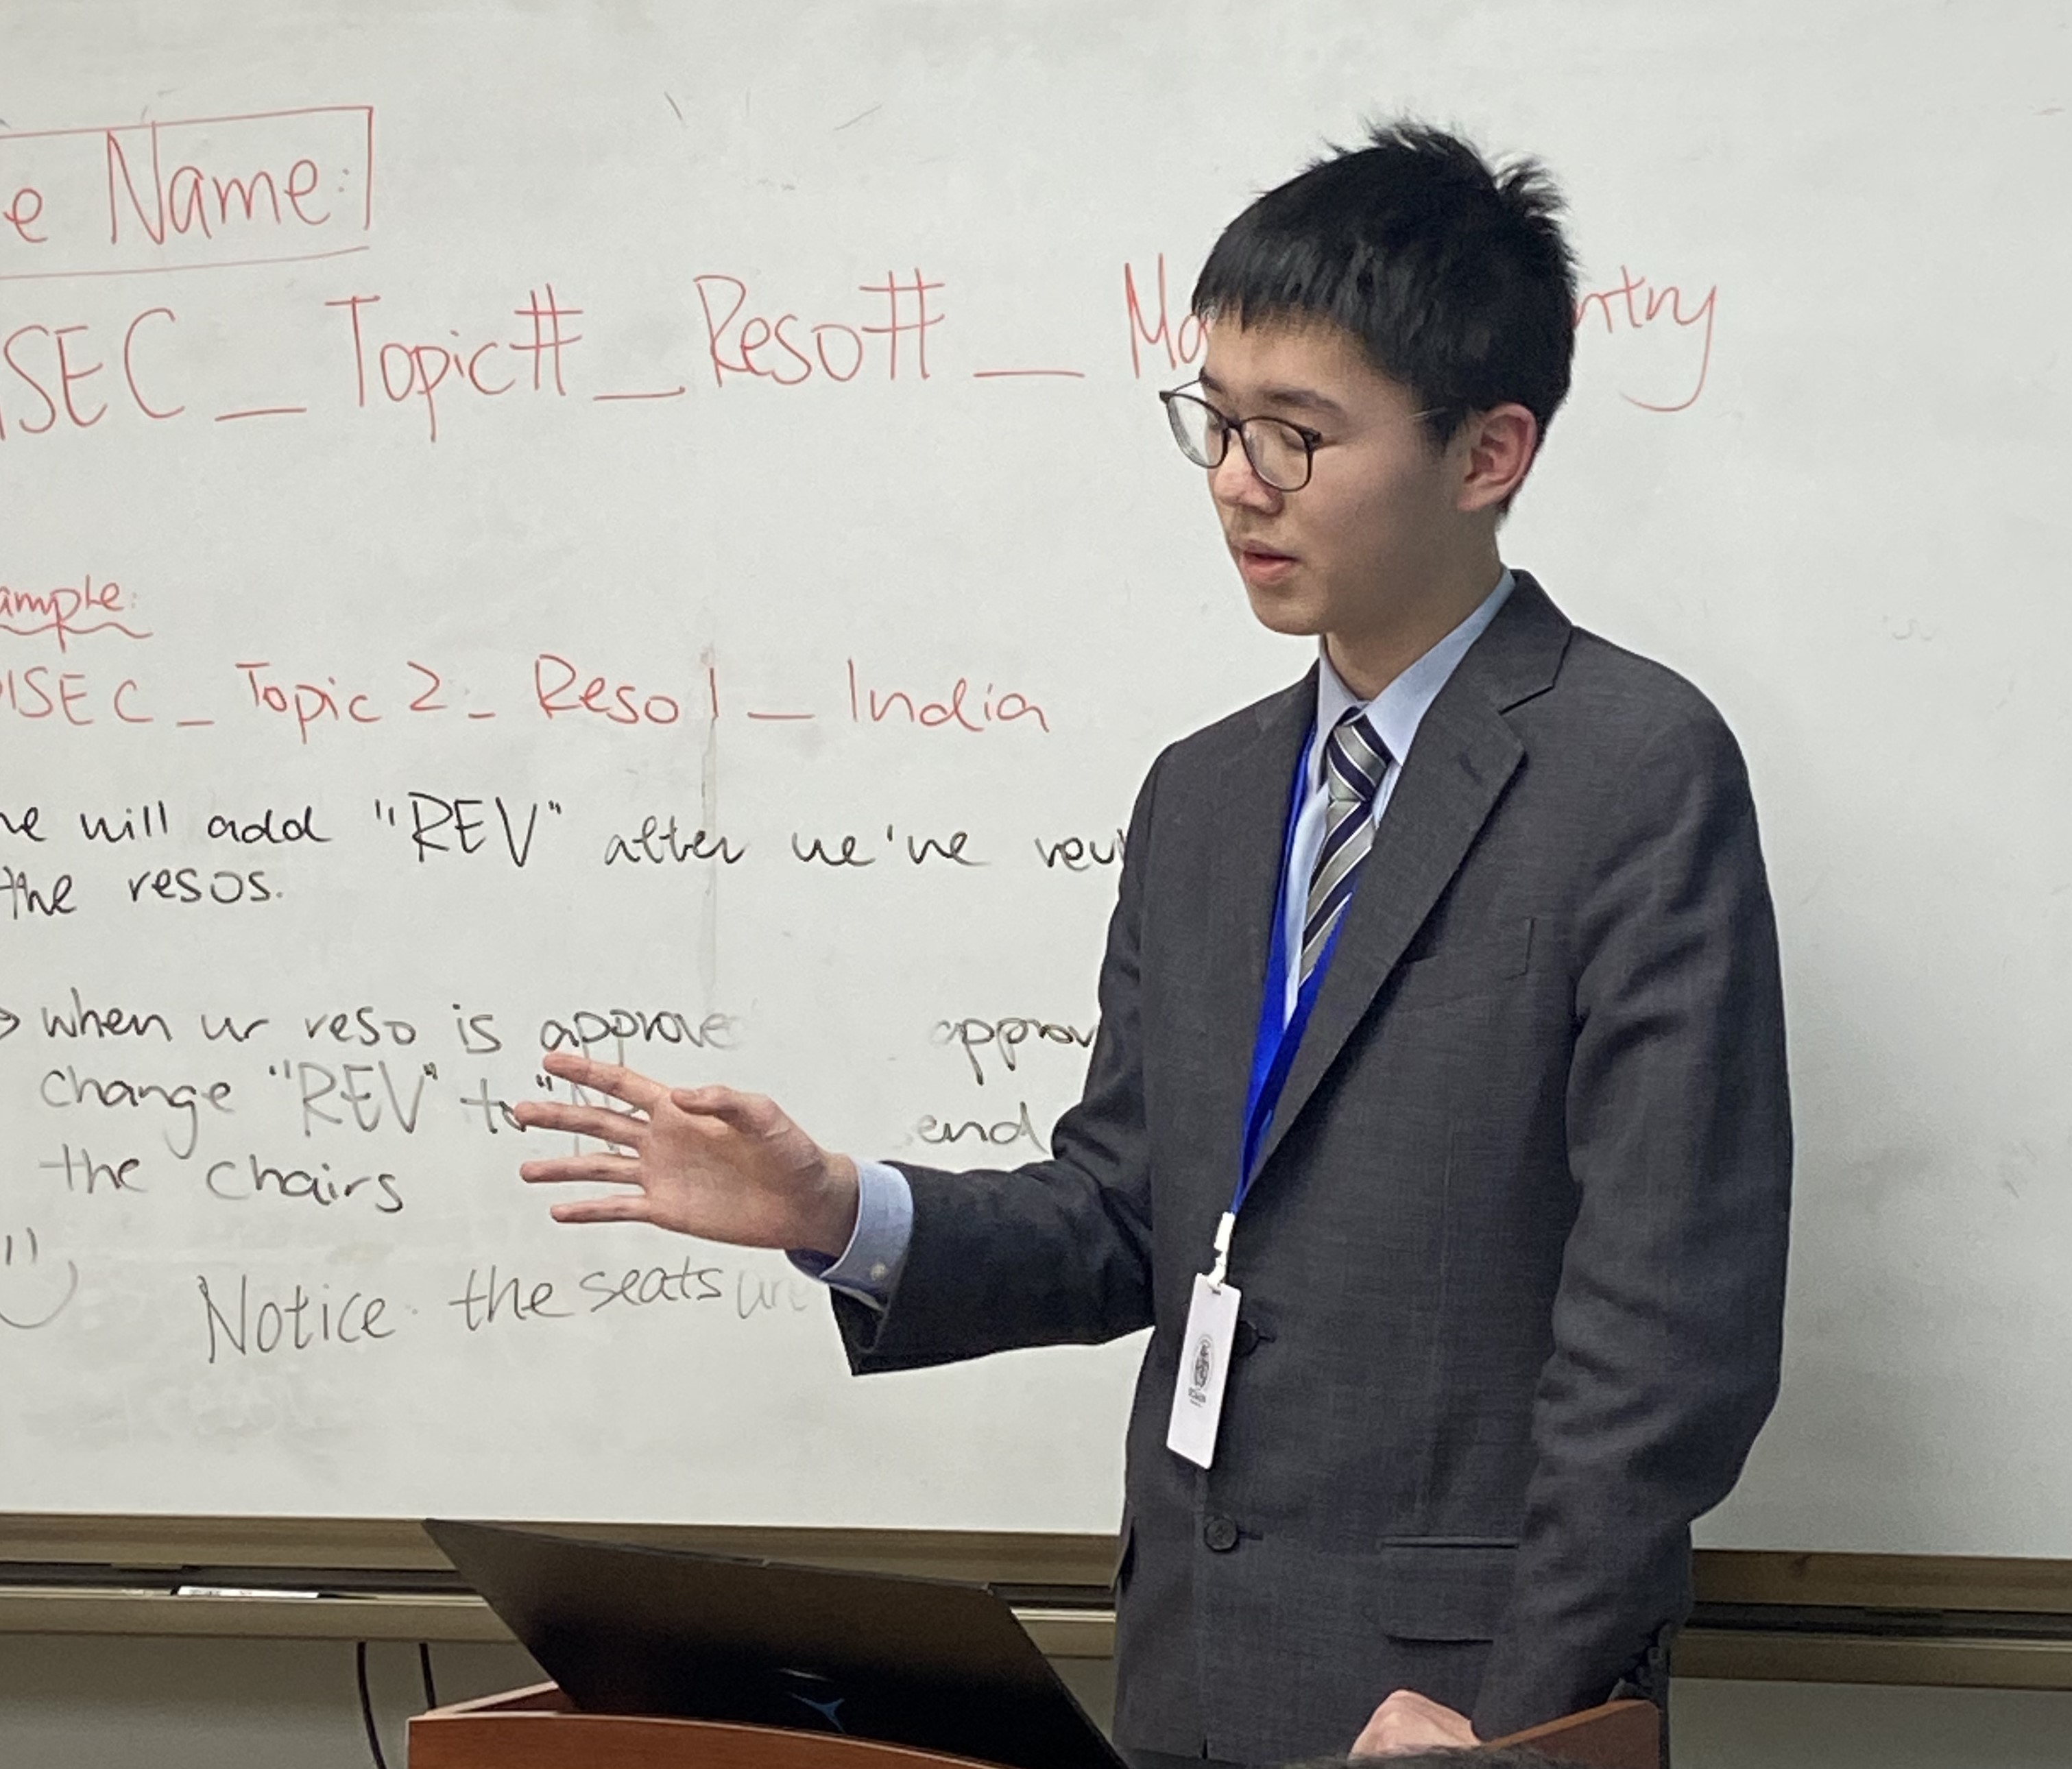 e Name:
SEC _ Topic# _ Reso# _
ample:
ISEC _ Topic 2 _ Reso 1 _ India
will add "REV" after we've
the resos.
→ when ur reso is approve
change "REV" to "
end
the chairs
Notice: the seats are